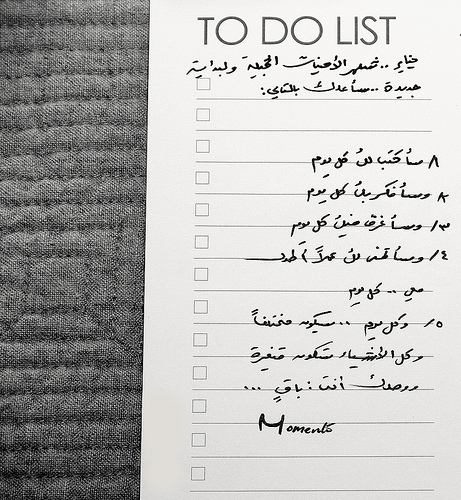 TO DO LIST
يناير .. شهر الأمنيات الجميلة ولبداية
جديدة .. سأعدك بالتالي:
١/ سأكتب لك كل يوم
٢/ وسأفكر بك كل يوم
٣/ وسأغرق فيك كل يوم
٤/ وسأتمنى لك عمراً أطول
معي .. كل يوم
٥/ وكل يوم .. سيكون مختلفاً
وكل الأشياء ستكون متغيرة
ووحدك أنت : باقٍ ...
Momento